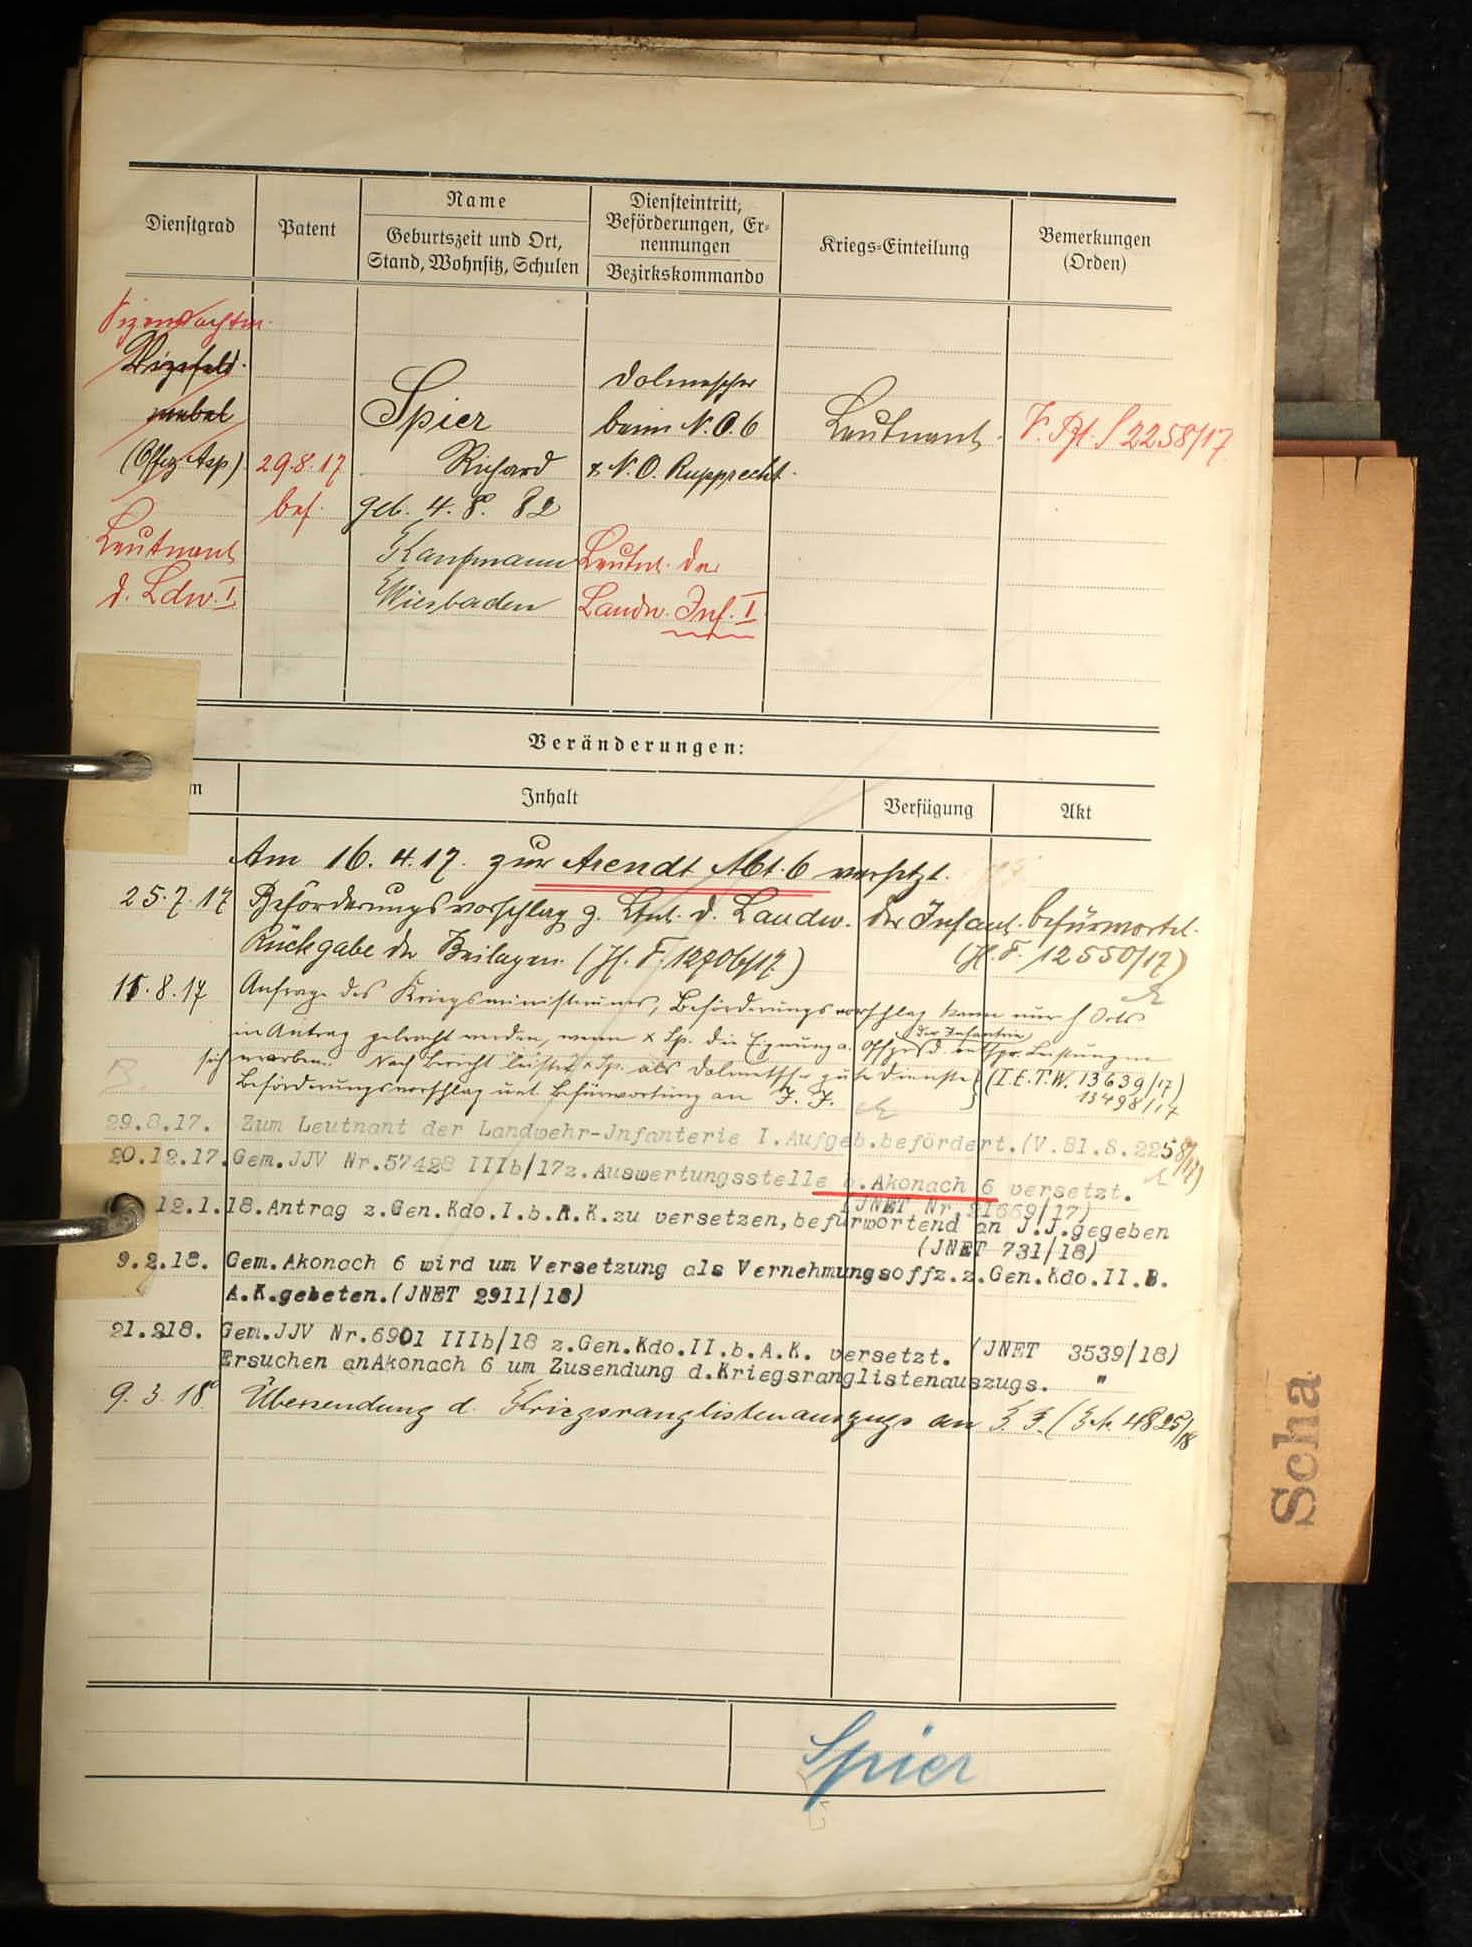 Dienstgrad
Patent
Name
Geburtszeit und Ort,
Stand, Wohnsitz, Schulen
Diensteintritt,
Beförderungen, Er-
nennungen
Bezirkskommando
Kriegs-Einteilung
Bemerkungen
(Orden)
Vizewachtm.
Vizefeld-
webel
(Offz. Asp)
Leutnant
d. Ldw. I
29.8.17
bef.
Spier
Richard
geb. 4. 8. 82
Kaufmann
Wiesbaden
Dolmescher
beim N.O. 6
x N.O. Rupprecht.
Leutnt. der
Landw. Inf. I
Leutnant.
V. Bl. S 2258/17
Veränderungen:
m
Inhalt
Verfügung
Akt
Am 16. 4. 17. zur Arendt Abt. 6 versetzt.
25.7.17 Beförderungsvorschlag z. Ltnt. d. Landw. der Infant. befürwortet.
Rückgabe der Beilagen. (J. F. 12706/17.) (J. F. 12550/17)
15.8.17 Anfrage des Kriegsministeriums, Beförderungsvorschlag kann nur
in Antrag gebracht werden, wenn x Sp. die Eignung z. Offz. d. entspr. Leistungen
der Infanterie
sich erworben. Nach Bericht leistet x Sp. als Dolmetscher gute Dienste (I.E.T.W. 13639/17)
Beförderungsvorschlag mit Befürwortung an J. J. 13498/17
29.8.17. Zum Leutnant der Landwehr-Jnfanterie I.Aufgeb.befördert.(V.Bl.S.2258/17)
20.12.17. Gem.JJV Nr.57428 IIIb/17z.Auswertungsstelle b.Akonach 6 versetzt.
(JNET Nr.21669/17)
12.1.18.Antrag z.Gen.Kdo.I.b.R.K.zu versetzen,befürwortend an J.J.gegeben
(JNET 731/18)
9.2.18. Gem.Akonach 6 wird um Versetzung als Vernehmungsoffz.z.Gen.Kdo.II.B.
A.K.gebeten.(JNET 2911/18)
21.218. Gem.JJV Nr.6901 IIIb/18 z.Gen.Kdo.II.b.A.K. versetzt. (JNET 3539/18)
Ersuchen anAkonach 6 um Zusendung d.Kriegsranglistenauszugs. "
9. 3. 18. Übersendung d. Kriegsranglistenauszugs an J. J. (J. N. 4825/18
Spier
Scha